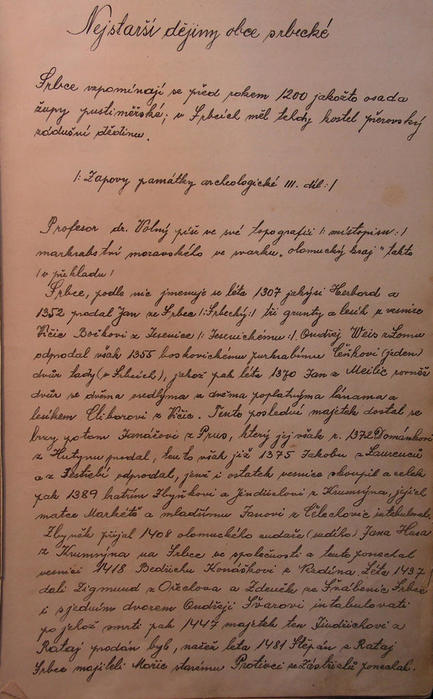 Nejstarší dějiny obce srbecké
Srbce vzpomínají se před rokem 1200 jakožto osada
župy pustiměřské; v Srbcích měl tehdy kostel přerovský
zádušní dědinu.
/: Zapovy památky archeologické III. díl:/
Profesor dr. Volný píše ve své topografii /: místopisu:/
markrabství moravského ve svazku „olomucký kraj" takto
/v překladu/
Srbce, podle nic jmenuje se léta 1307 jakýsi Herbord a
1352 prodal Jan ze Srbce /:Srbecký:/ tři grunty a lesík z vesnice
Vičic Bočkovi z Jesenice /: Jesenickému:/. Ondřej Weis z Lomu
odprodal však 1355 boskovickému purkrabímu Ješkovi (jeden
dvůr tady (v Srbcích), jehož pak léta 1370 Jan a rovněž
dvůr se dvěma a dvěma poplatnými lánama a
lesíkem Ctiborovi z Vičic. Tento poslední majetek dostal se
brzy potom Janáčovi z Prus, který jej však r. 1372 Dománkovi
z prodal, tento však již 1375 Jakobu z
a z odprodal, jenž i ostatek vesnice skoupil a celek
pak 1389 bratřím Zbyňkovi a Jindřichovi z Krumsína, jejich
matce Markétě a mladšímu Janovi z Čelechovic intabuloval.
Zbyněk přijal 1408 olomuckého sudího Jana Husa
z Krumsína na Srbce ve společnosti a tento ponechal
vesnici 1418 Bedřichu Konáškovi z Léta 1437
dali Zigmund z Ořechova a Zdeněk ze Švábenic Srbce
i s jedním dvorem Ondřeji Švarcovi intabulovati
po jehož smrti pak 1447 majetek ten Jindřichovi z
Rataj prodán byl, načež léta 1481 Štěpán z Rataj
Srbce majiteli Mořic starému Protivci ze Zástřizl ponechal.